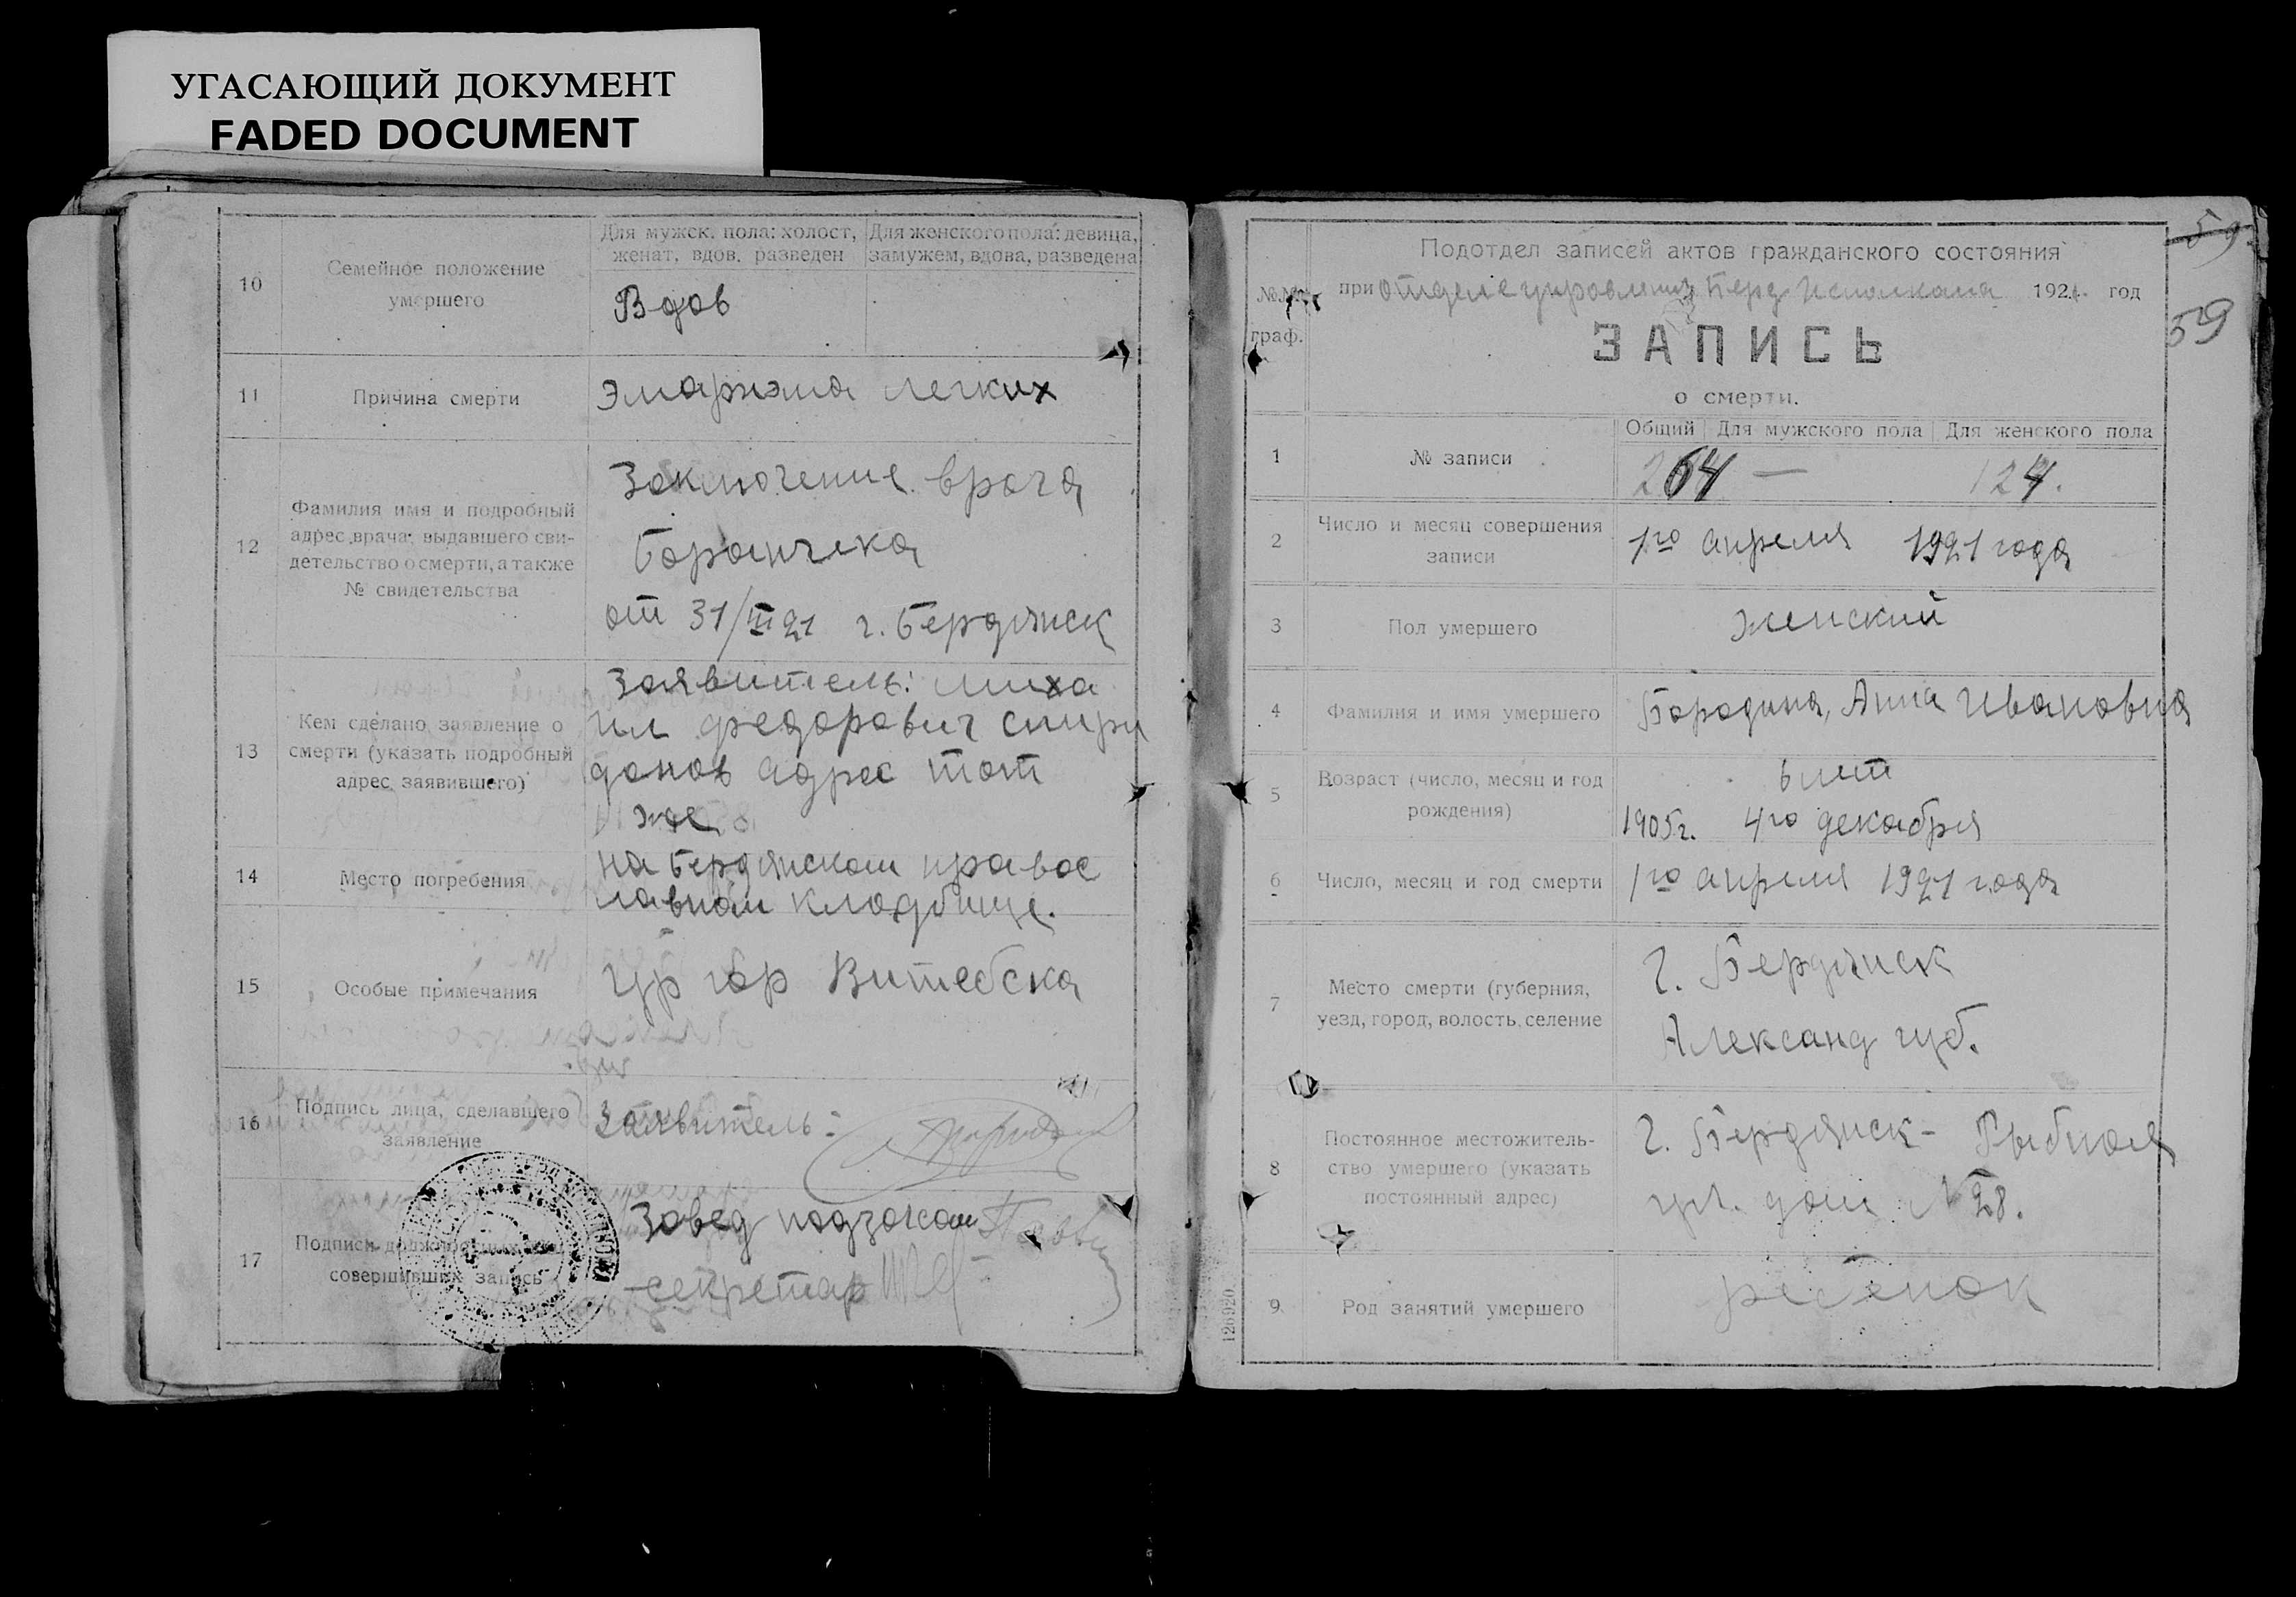 УГАСАЮЩИЙ ДОКУМЕНТ
FADED DOCUMENT
10
Семейное положение
умершего
Для мужск. пола: холост,
женат, вдов, разведен
Для женского пола: девица,
замужем, вдова, разведена
Вдов
11
Причина смерти
легких
12
Фамилия имя и подробный
адрес врача, выдавшего сви-
детельство о смерти, а также
№ свидетельства
Заключение врача
от 31/III 21 г. Бердянск
13
Кем сделано заявление о
смерти (указать подробный
адрес заявившего)
Заявитель: миха
ил федорович спири
донов адрес тот
же
14
Место погребения
на бердянском правос
лавном кладбище.
15
Особые примечания
гр гор Витебска
16
Подпись лица, сделавшего
заявление
Заявитель:
17
Подписи должностных лиц
совершивших запись
Завед подзагсом
секретар
59
59
№№
граф.
Подотдел записей актов гражданского состояния
при отделе управления Берд Исполкома 1921 год
ЗАПИСЬ
о смерти.
1
№ записи
Общий
Для мужского пола
Для женского пола
264 — 124.
2
Число и месяц совершения
записи
1го апреля 1921 года
3
Пол умершего
женский
4
Фамилия и имя умершего
Бородина, Анна Ивановна
5
Возраст (число, месяц и год
рождения)
6 лет
1905г. 4го декабря
6
Число, месяц и год смерти
1го апреля 1921 года
7
Место смерти (губерния,
уезд, город, волость, селение
г. Бердянск
Александ губ.
8
Постоянное местожитель-
ство умершего (указать
постоянный адрес)
г. Бердянск - Рыбная
ул. дом № 28.
9
Род занятий умершего
ребенок
126920